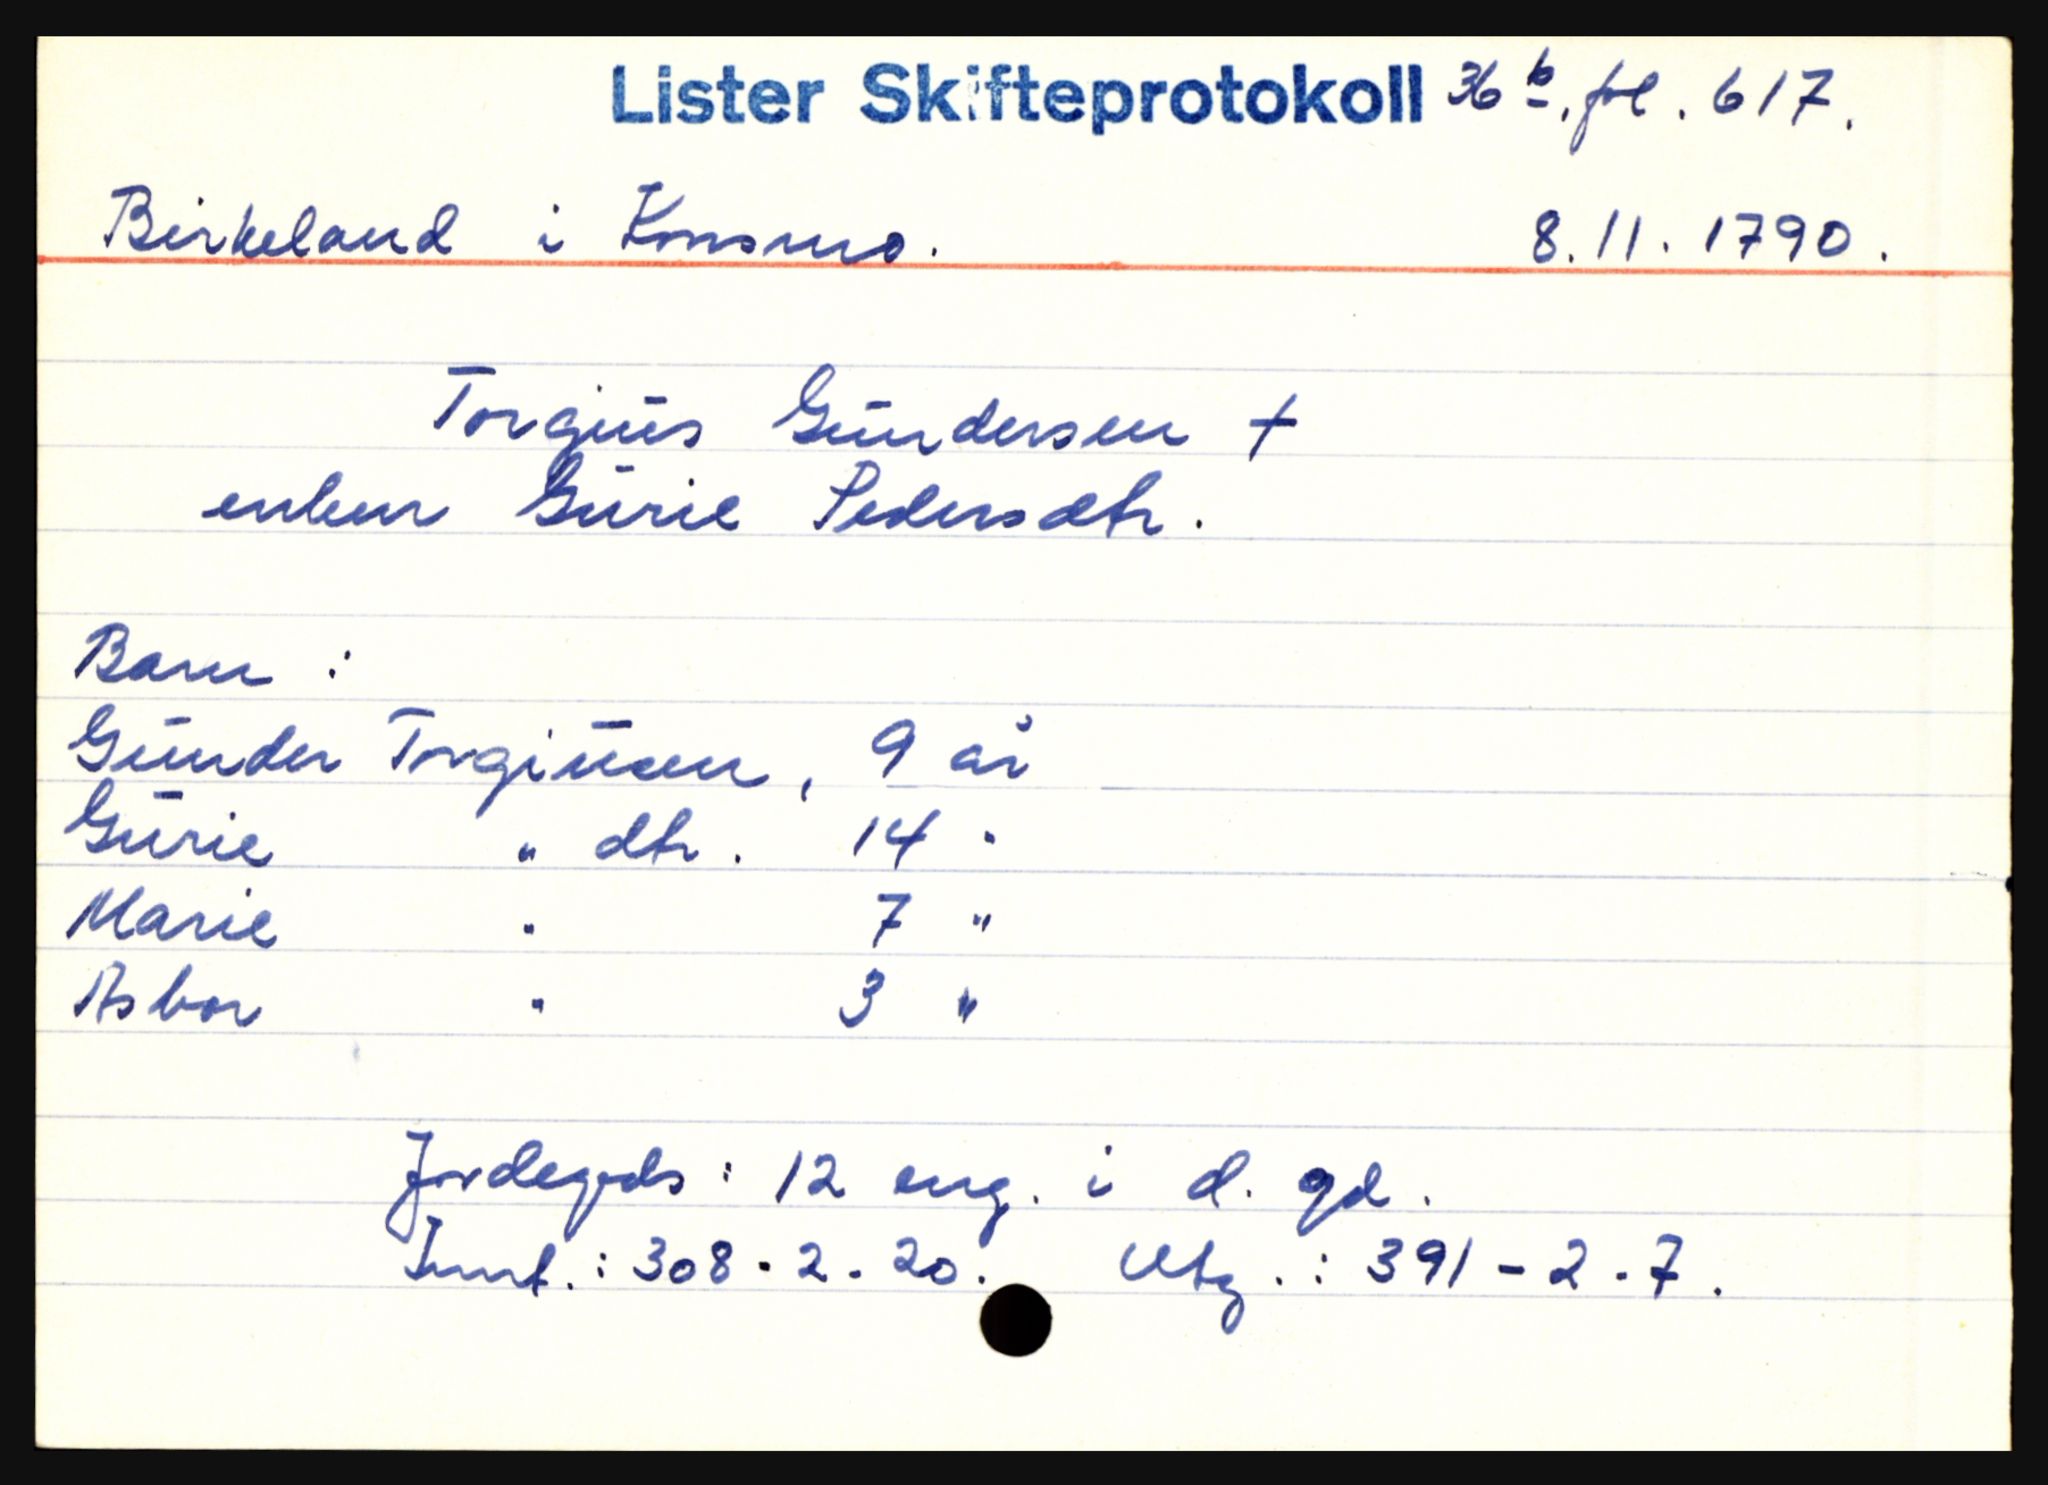 Lister Skifteprotokoll 36 b, fol. 617.
Birkeland i Konsmo. 8.11.1790.
Torgius Gundersen †
enken Gurie Pedersdtr.
Barn:
Gunder Torgiusen, 9 år
Gurie " dtr. 14 "
Marie " 7 "
Asbor " 3 "
Jordegods: 12 eng. i d. gd.
Innt.: 308 - 2 - 20. Utg.: 391 - 2 - 7.